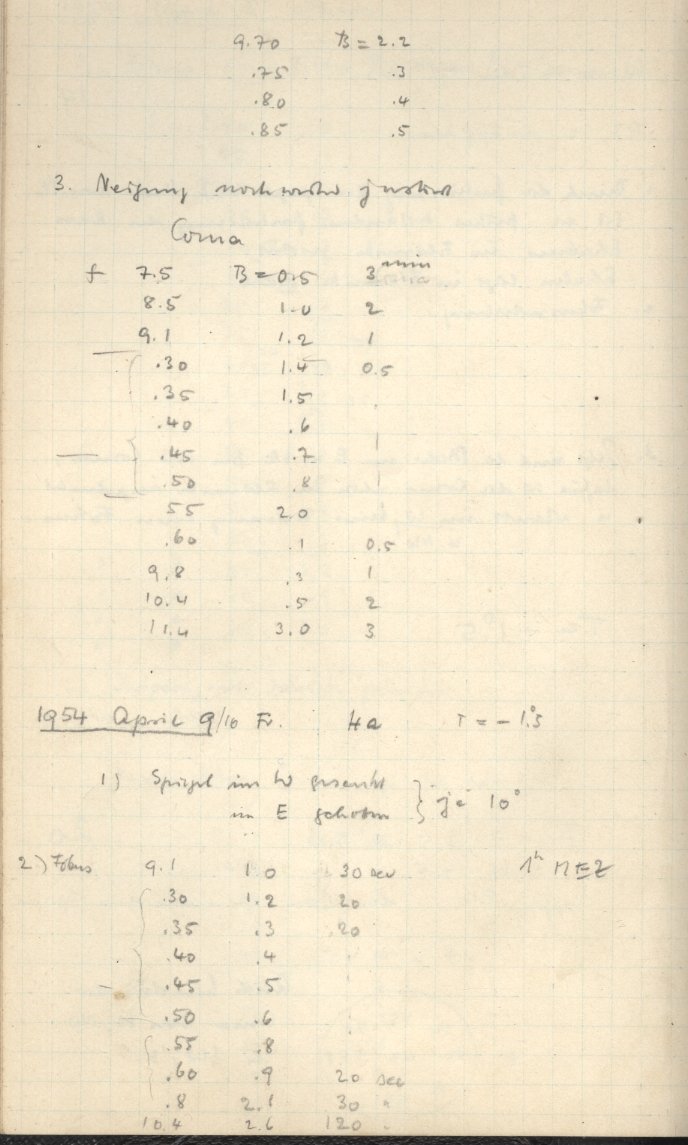 9.70 B = 2.2
.75 .3
.80 .4
.85 .5
3. Neigung justiert
Coma
f 7.5 B = 0.5 3 min
8.5 1.0 2
9.1 1.2 1
.30 1.4 0.5
.35 1.5
.40 .6
.45 .7
.50 .8
55 2.0
.60 .1 0.5
9.8 .3 1
10.4 .5 2
11.4 3.0 3
1954 April 9/10 Fr. Ha T = - 1°.5
1) Spiegel im W gesenkt
im E gehoben } je 10°
2.) Fokus 9.1 1.0 30 sec 1h MEZ
.30 1.2 20
.35 .3 20
.40 .4
.45 .5
.50 .6
.55 .8
.60 .9 20 sec
.8 2.1 30 "
10.4 2.6 120 "